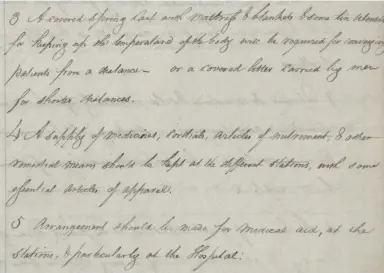 3 A covered Spring Cart with Mattress & blankets & some tin utensils
for keeping up the temperature of the body will be required for conveying
patients from a distance – or a covered litter carried by men
for shorter distances.
4 A supply of medicines, cordials, articles of nutriment, & other
remedial means should be kept at the different stations, with some
essential articles of apparel.
5 Arrangement should be made for medical aid, at the
Stations, & particularly at the Hospital.